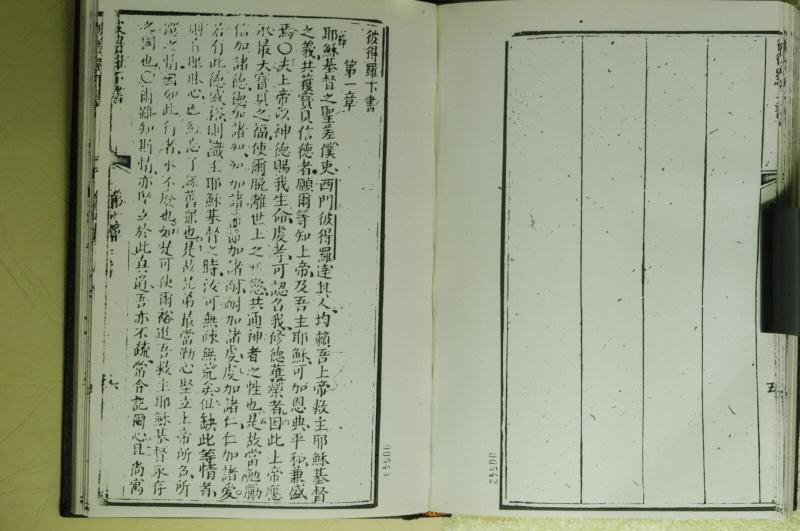 彼得羅下書
第一章
耶穌基督之聖差僕吏西門彼得羅達其人均賴吾上帝救主耶穌基督
之義共獲寶貝信德者願爾等知上帝及吾主耶穌可加恩典平和兼盛
焉〇夫上帝以神德賜我生命虔孝可認召我修德獲榮者因此上帝應
承最大寶貝之福使爾脫離世上之慾共通神者之性也是故當勉勵
信加諸德德加諸知知加諸節節加諸耐耐加諸虔虔加諸仁仁加諸愛
若有此德盛裕則識主耶穌基督之時汝可無疎無荒矣似缺此等情者
則盲眼心也忘了舊罪也是故兄弟最當勤心堅立上帝所召所
選之情因如此行者永不廢也如是可使爾裕進吾救主耶穌基督永存
之國也〇爾雖知斯情亦堅立於此真道吾亦不疏常令記爾心且尚寓
彼得羅下書
五
六
00541
00542